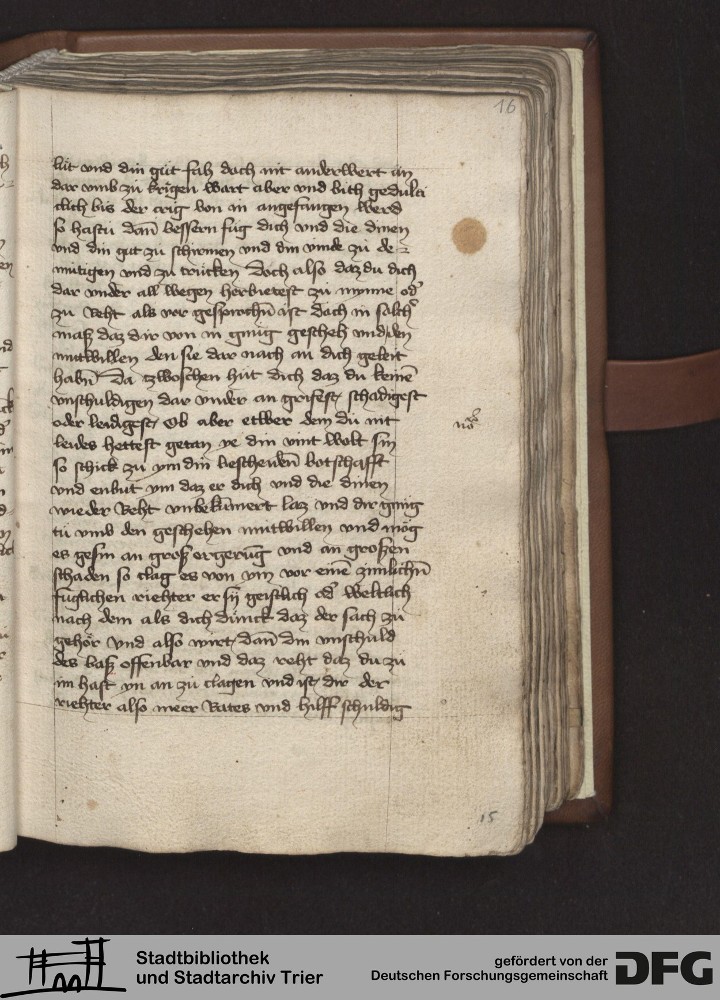 16
lút vnd din gút fah doch nit anderwert an
dar vmb zú krigen wart aber vnd bith gedulti
clich bis der crig von in angefangen werd
so hastu dan̄ bessern fúg dich vnd die dinen
vnd din gut zú schirmen vnd din vinde zú de-
mútigen vnd zú trúcken Doch also daz du dich
dar vnder all wegen herbietest zú mynne od'
zú Reht als vor gesprochn̄ ist doch in solich'
maß daz dir von in gnúg gescheh vmb den
mutwillen den sie dar nach an dich geleit
habn̄ Da tzwoschen hút dich daz du keinē
vnschuldigen dar vnder an grifest schadigest
oder leidigest Ob aber etwer dem du nit
leides hettest getan ye din vint wolt sin
so schick zú ym din bescheiden̄ botschafft
vnd enbút ym daz er dich vnd die dinen
wieder Reht vnbekúmert laz vnd dir gnúg
tú vmb den geschehen mutwillen vnd mög
es gesin an groß ergerúng vnd an großen
schaden so clag es von ym vor einē zimlichn̄
fúglichen riehter er sy geistlich od' weltlich
nach dem als dich dúnck daz der sach zú
gehör vnd also wirt dan̄ din vnschuld
des baß offenbar vnd daz reht daz du zú
im hast yn an zú clagen vnd ist dir der
riehter also meer Rates vnd hilff schuldig
15
Stadtbibliothek
und Stadtarchiv Trier
gefördert von der
Deutschen Forschungsgemeinschaft
DFG